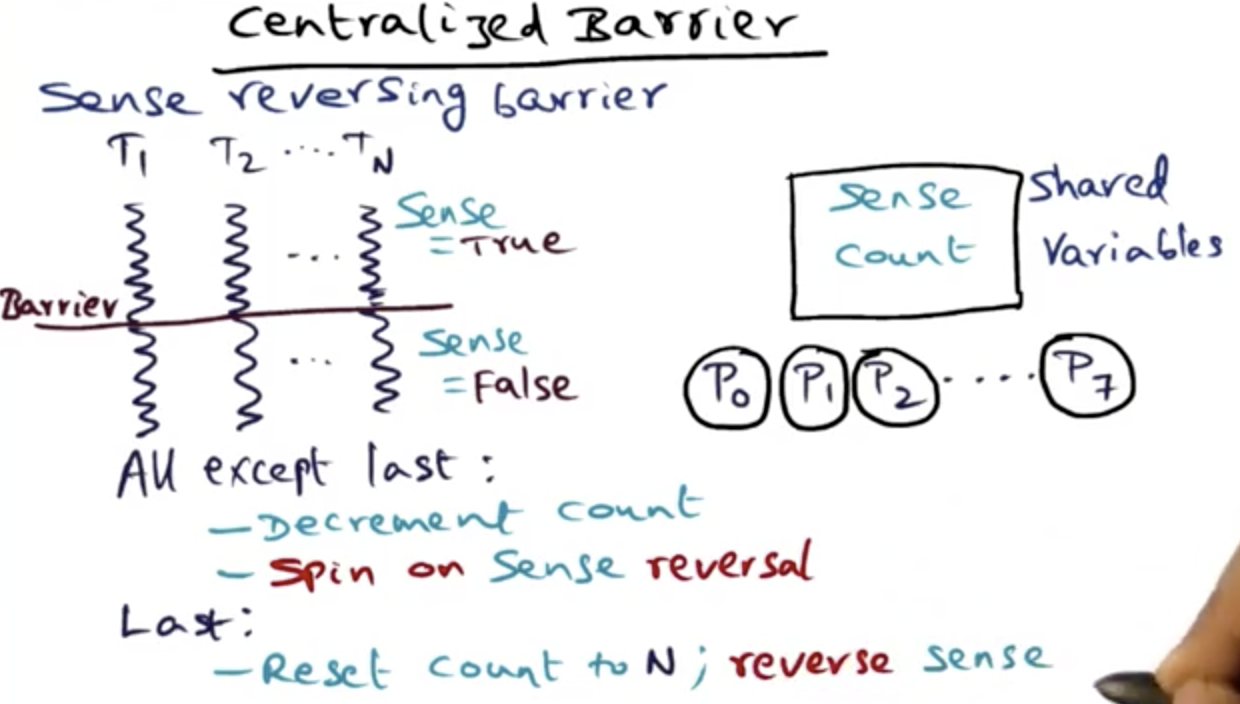 Centralized Barrier
Sense reversing barrier
T1 T2 .... TN
Sense
= True
...
Barrier
Sense
= False
...
Sense
Count
Shared
Variables
P0 P1 P2 .... P7
All except last :
- Decrement count
- Spin on Sense reversal
Last:
- Reset count to N ; reverse sense